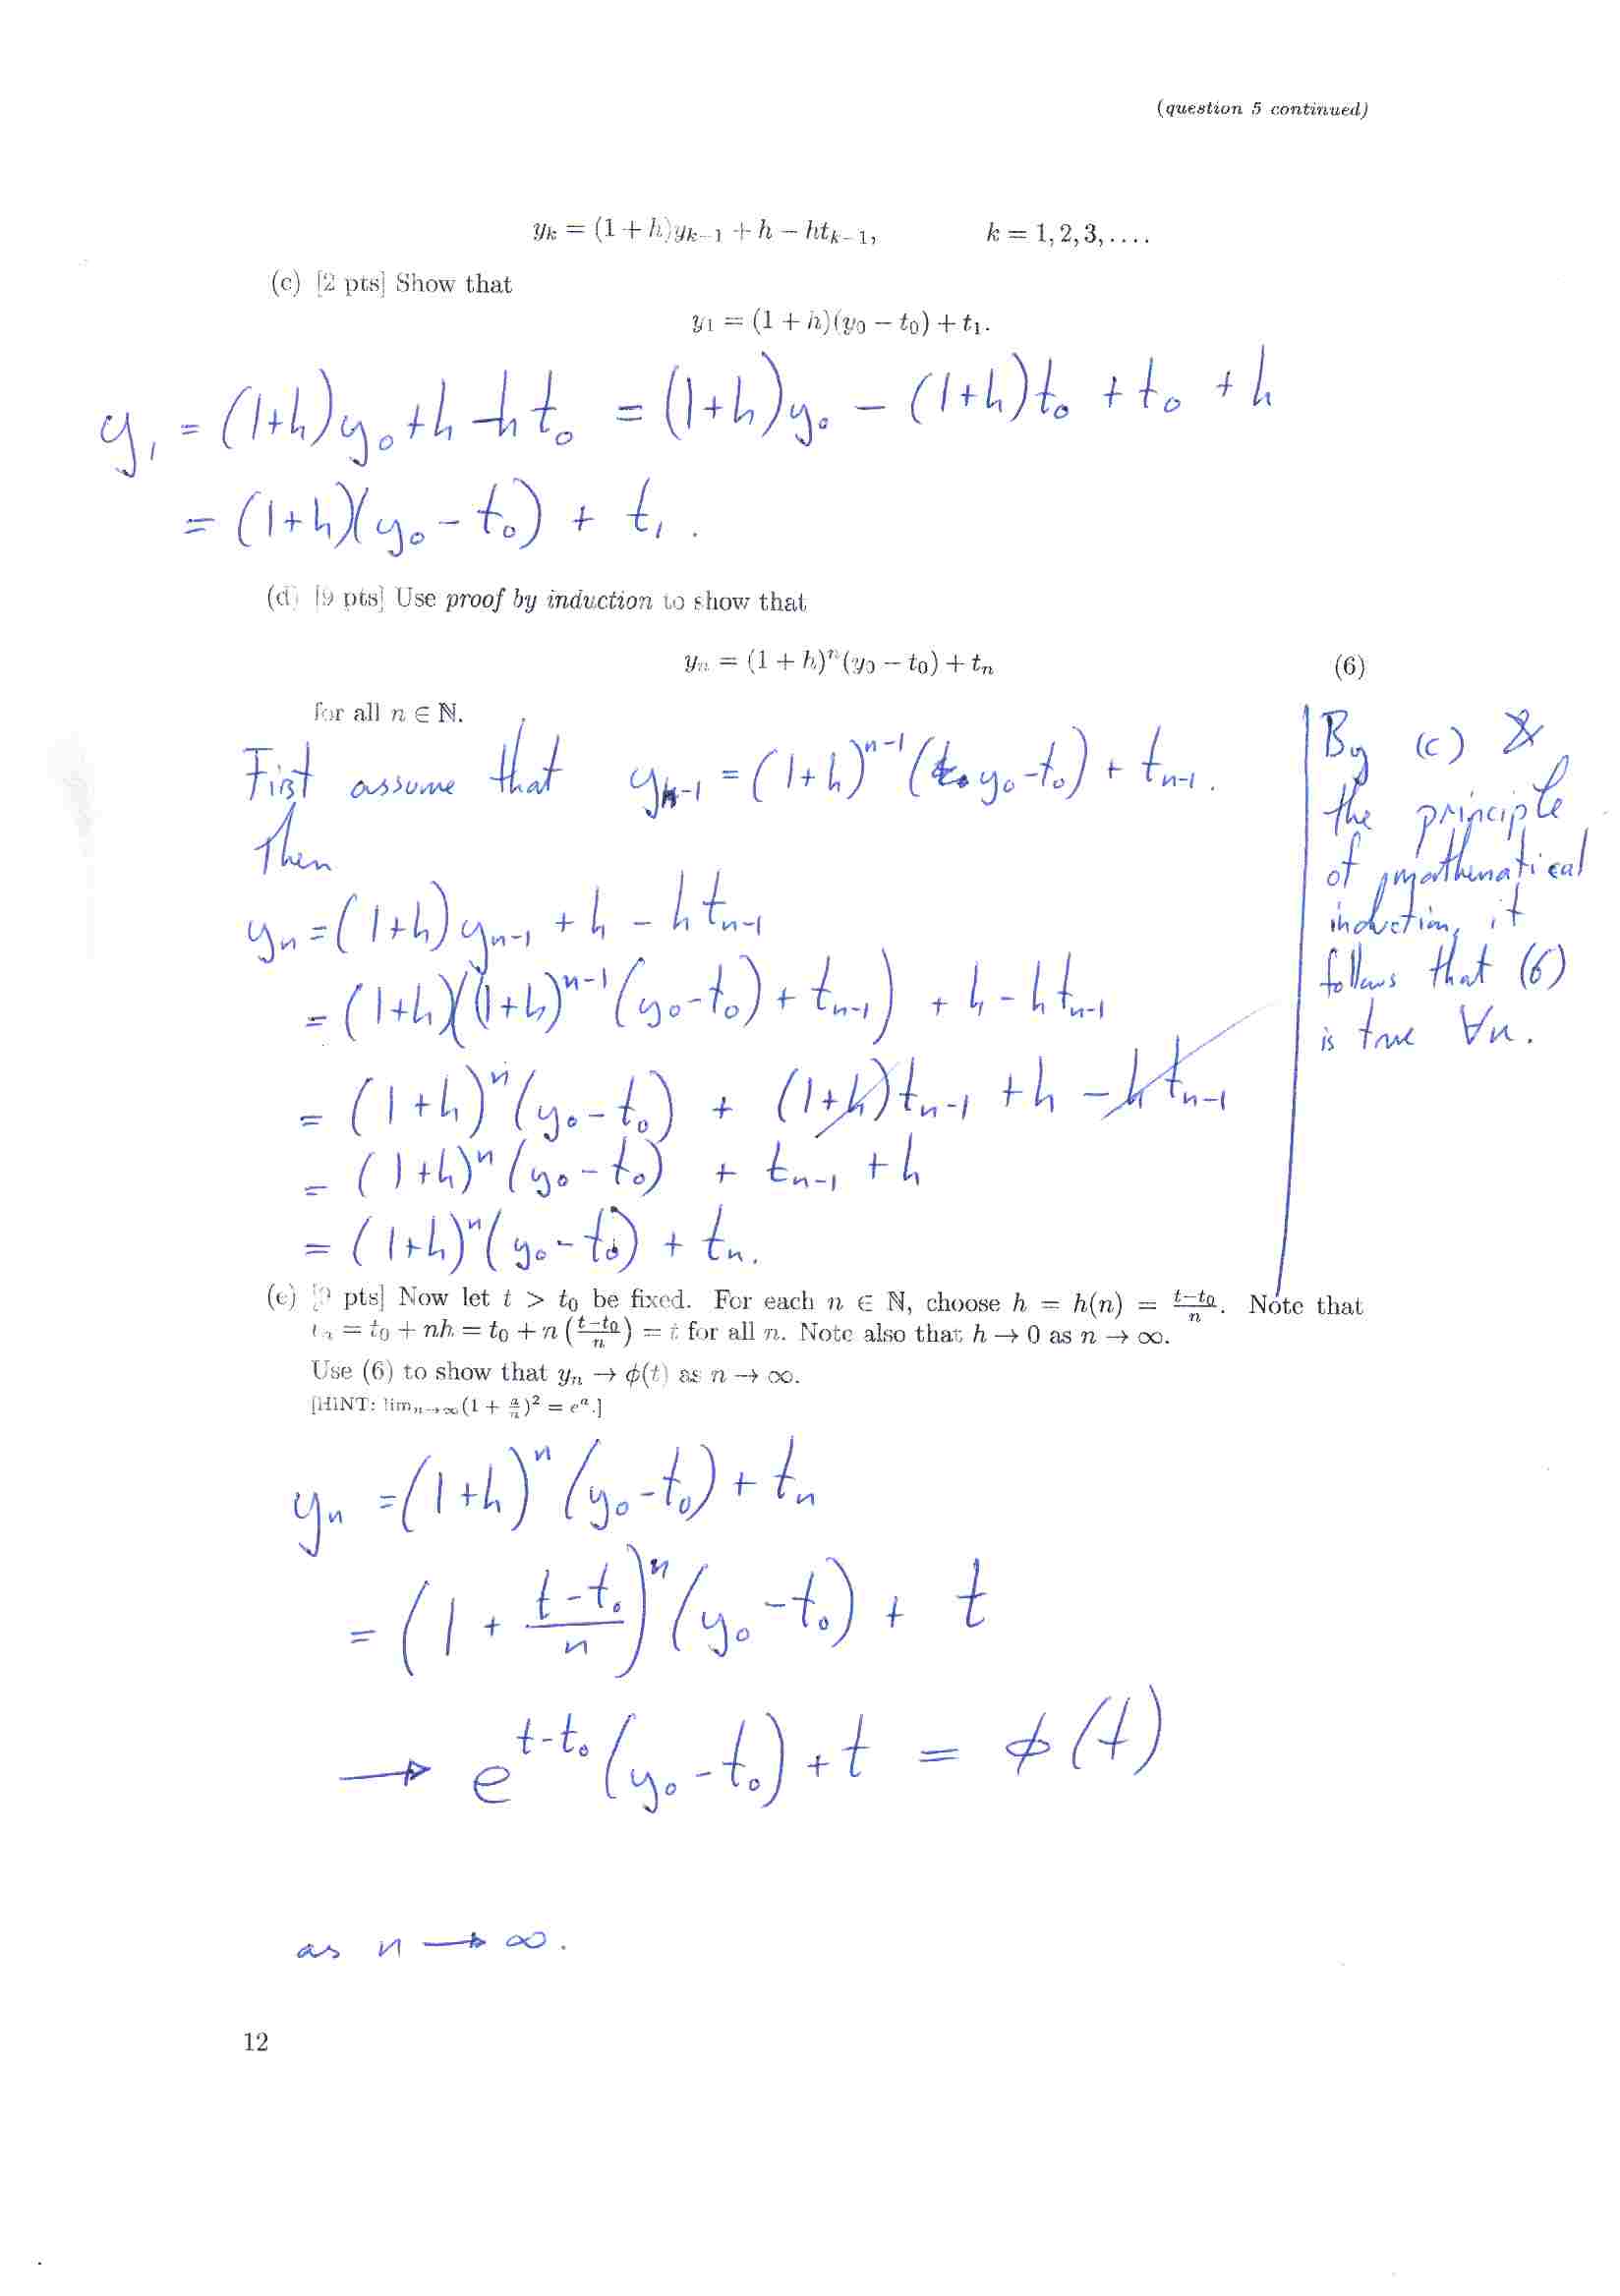 (question 5 continued)
y_k = (1 + h)y_{k−1} + h − ht_{k−1},    k = 1, 2, 3, . . . .
(c) [2 pts] Show that
y_1 = (1 + h)(y_0 − t_0) + t_1.
y_1 = (1+h)y_0 + h − ht_0 = (1+h)y_0 − (1+h)t_0 + t_0 + h
= (1+h)(y_0 − t_0) + t_1.
(d) [9 pts] Use proof by induction to show that
y_n = (1 + h)^n (y_0 − t_0) + t_n    (6)
for all n ∈ ℕ.
First assume that y_{n−1} = (1+h)^{n−1} (y_0 − t_0) + t_{n−1}.
Then
y_n = (1+h) y_{n−1} + h − ht_{n−1}
= (1+h)((1+h)^{n−1} (y_0 − t_0) + t_{n−1}) + h − ht_{n−1}
= (1+h)^n (y_0 − t_0) + (1+h)t_{n−1} + h − ht_{n−1}
= (1+h)^n (y_0 − t_0) + t_{n−1} + h
= (1+h)^n (y_0 − t_0) + t_n.
By (c) &
the principle
of mathematical
induction, it
follows that (6)
is true ∀n.
(e) pts] Now let t > t_0 be fixed. For each n ∈ ℕ, choose h = h(n) = \frac{t−t_0}{n}. Note that
t_n = t_0 + nh = t_0 + n (\frac{t−t_0}{n}) = t for all n. Note also that h → 0 as n → ∞.
Use (6) to show that y_n → ϕ(t) as n → ∞.
[HINT: lim_{n→∞}(1 + \frac{a}{n})^2 = e^a.]
y_n = (1+h)^n (y_0 − t_0) + t_n
= (1 + \frac{t−t_0}{n})^n (y_0 − t_0) + t
→ e^{t−t_0} (y_0 − t_0) + t = ϕ(t)
as n → ∞.
12